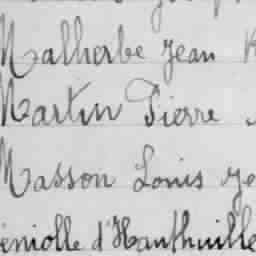 Malherbe Jean
Martin Pierre
Masson Louis
d'Hanthuille